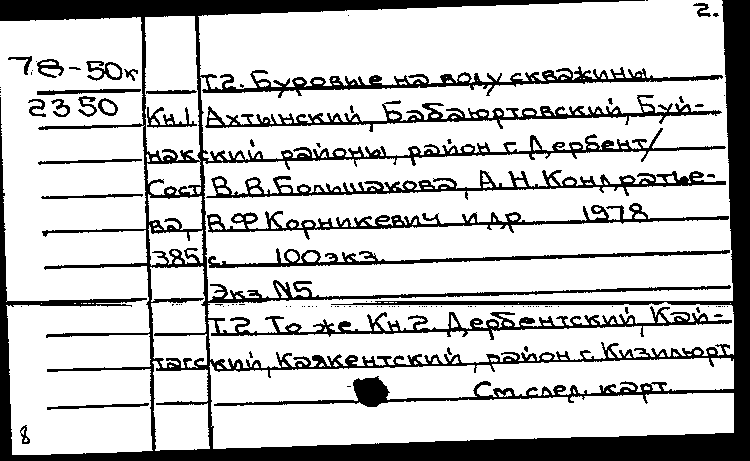 2.
78-50к
Т.2. Буровые на воду скважины.
2350 Кн.1. Ахтынский, Бабаюртовский, Буй-
накский районы, район г. Дербент/
Сост. В.В. Большакова, А.Н. Кондратье-
ва, В.Ф Корникевич и др. 1978
385 с. 100 экз.
Экз. N5.
Т.2. То же. Кн.2. Дербентский, Кай-
тагский, Каякентский, район г. Кизилюрт.
См. след. карт.
8